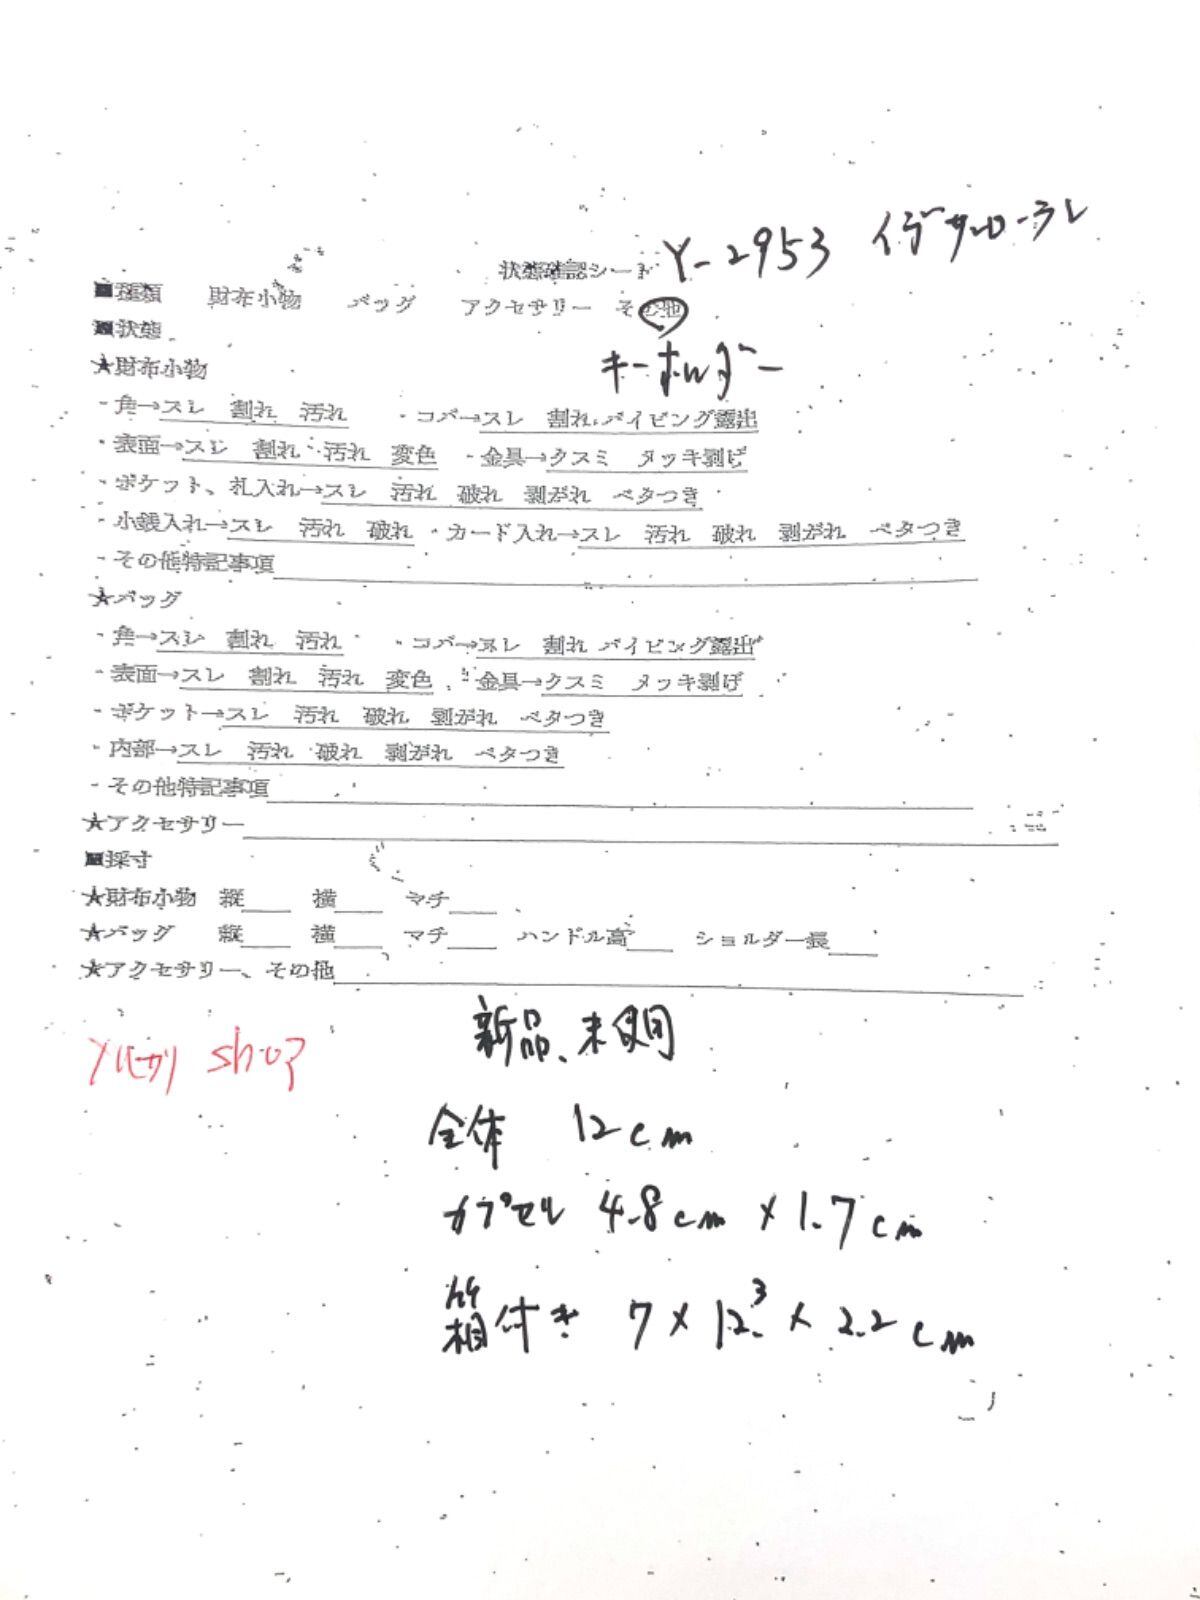 状態確認シート Y-2953 イヴサンローラン
■種類 財布小物 バッグ アクセサリー その他
■状態
キーホルダー
★財布小物
・角→スレ 割れ 汚れ ・コバ→スレ 割れ パイピング露出
・表面→スレ 割れ 汚れ 変色 ・金具→クスミ メッキ剥げ
・ポケット、札入れ→スレ 汚れ 破れ 剥がれ ベタつき
・小銭入れ→スレ 汚れ 破れ ・カード入れ→スレ 汚れ 破れ 剥がれ ベタつき
・その他特記事項
★バッグ
・角→スレ 割れ 汚れ ・コバ→スレ 割れ パイピング露出
・表面→スレ 割れ 汚れ 変色 ・金具→クスミ メッキ剥げ
・ポケット→スレ 汚れ 破れ 剥がれ ベタつき
・内部→スレ 汚れ 破れ 剥がれ ベタつき
・その他特記事項
★アクセサリー
■採寸
★財布小物 縦 横 マチ
★バッグ 縦 横 マチ ハンドル高 ショルダー長
★アクセサリー、その他
新品、未使用
shop
全体 12cm
カプセル 4.8cm×1.7cm
箱付き 7×12.3×2.2cm